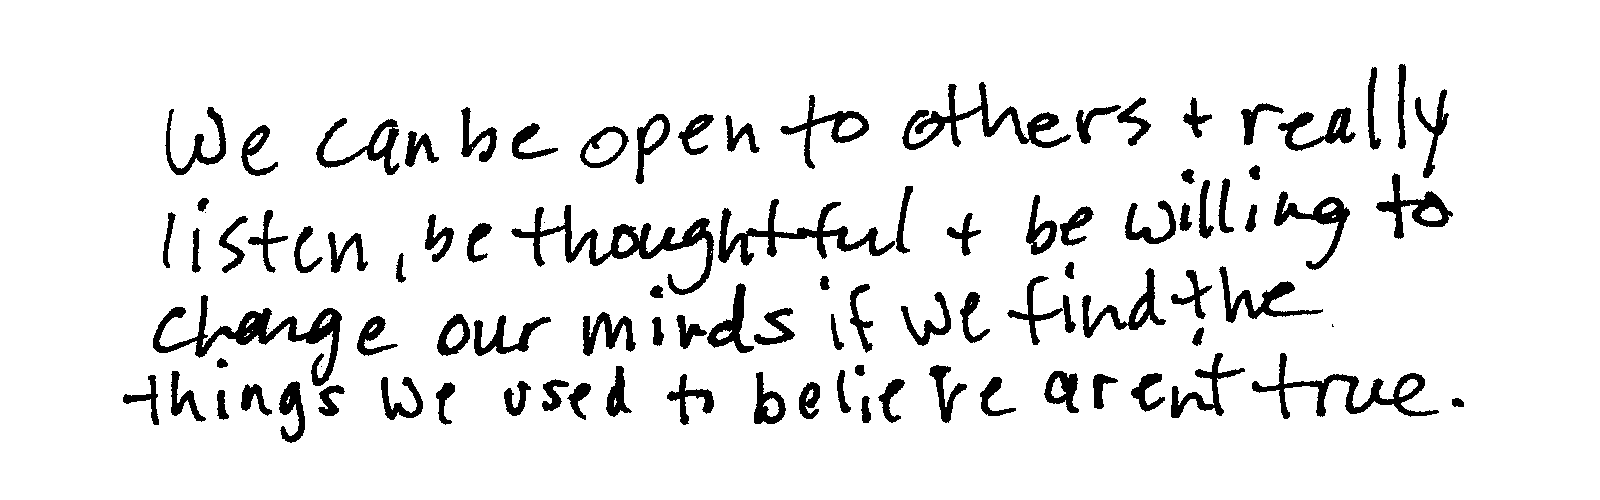 We can be open to others + really
listen, be thoughtful + be willing to
change our minds if we find the
things we used to believe aren't true.